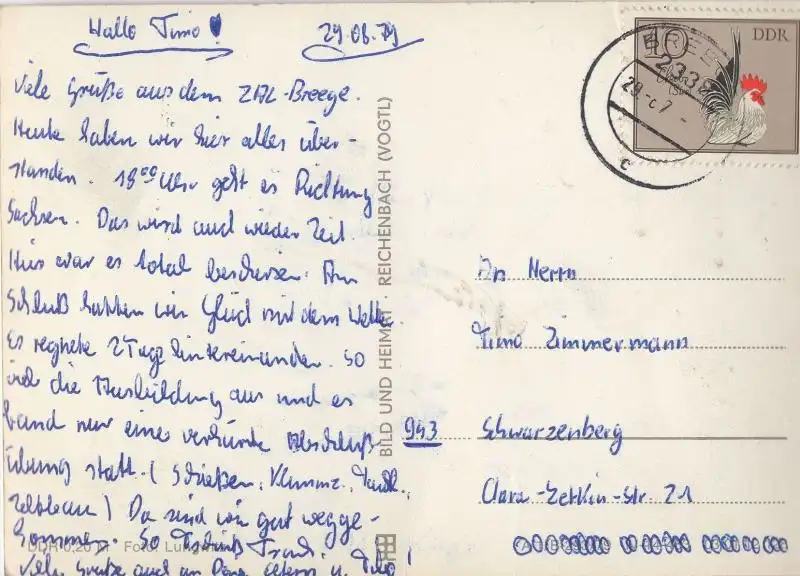 Hallo Timo!
29.08.79
Viele Grüße aus dem ZAL-Breege.
Heute haben wir hier alles über-
standen. 18⁰⁰ Uhr geht es Richtung
Sachsen. Das wird auch wieder Zeit.
Hier war es total beschissen. Am
Schluß hatten wir Glück mit dem Wetter.
Es regnete 2 Tage hintereinander. So
viel die Ausbildung aus und es
fand nur eine verkürzte Abschluß-
übung statt. (Schießen,
Zeltbau) Da sind wir gut wegge-
kommen. So Tschüß
Viele Grüße auch an Deine Eltern u.
DDR 0,20 M Foto:
BILD UND HEIMAT · REICHENBACH (VOGTL)
10
DDR
BREEGE
2338
An Herrn
Timo Zimmermann
943 Schwarzenberg
Clara-Zetkin-Str. 21